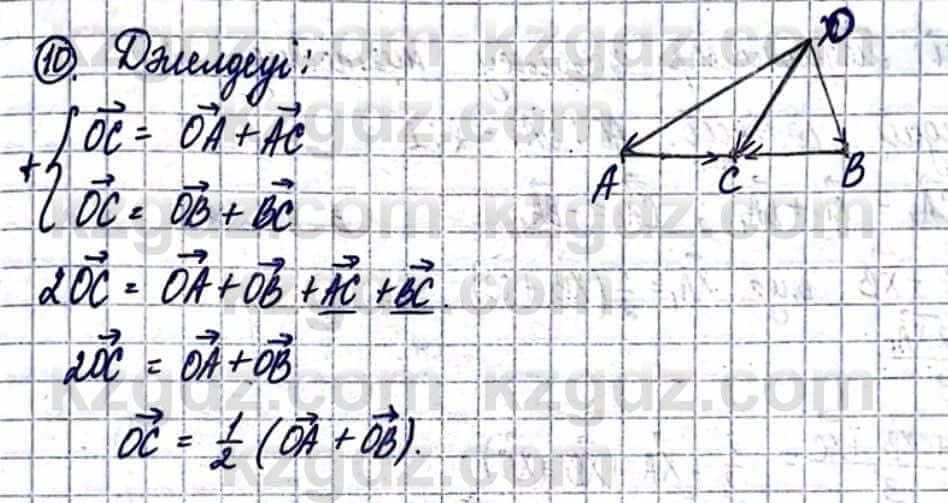 10. Дәлелдеуі:
+ { OC⃗ = OA⃗ + AC⃗
OC⃗ = OB⃗ + BC⃗
2OC⃗ = OA⃗ + OB⃗ + AC⃗ + BC⃗.
2OC⃗ = OA⃗ + OB⃗
OC⃗ = 1/2 (OA⃗ + OB⃗).
O
A C B
kzgdz.com kzgdz.com
kzgdz.com kzgdz.com
kzgdz.com kzgdz.com
kzgdz.com kzgdz.com
kzgdz.com kzgdz.com